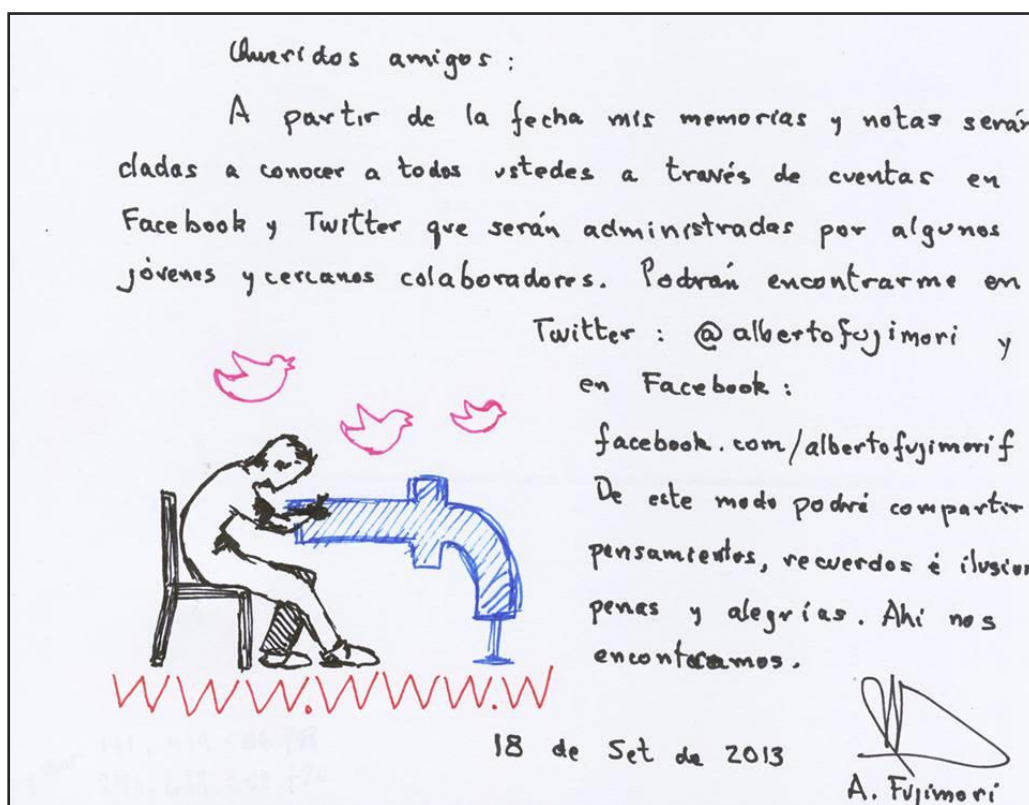 Queridos amigos:
A partir de la fecha mis memorias y notas serán
dadas a conocer a todos ustedes a través de cuentas en
Facebook y Twitter que serán administradas por algunos
jóvenes y cercanos colaboradores. Podrán encontrarme en
Twitter: @albertofujimori y
en Facebook:
facebook.com/albertofujimorif
De este modo podré compartir
pensamientos, recuerdos é ilusion
penas y alegrías. Ahi nos
encontramos.
WWW.WWWW.W
18 de Set de 2013
A. Fujimori